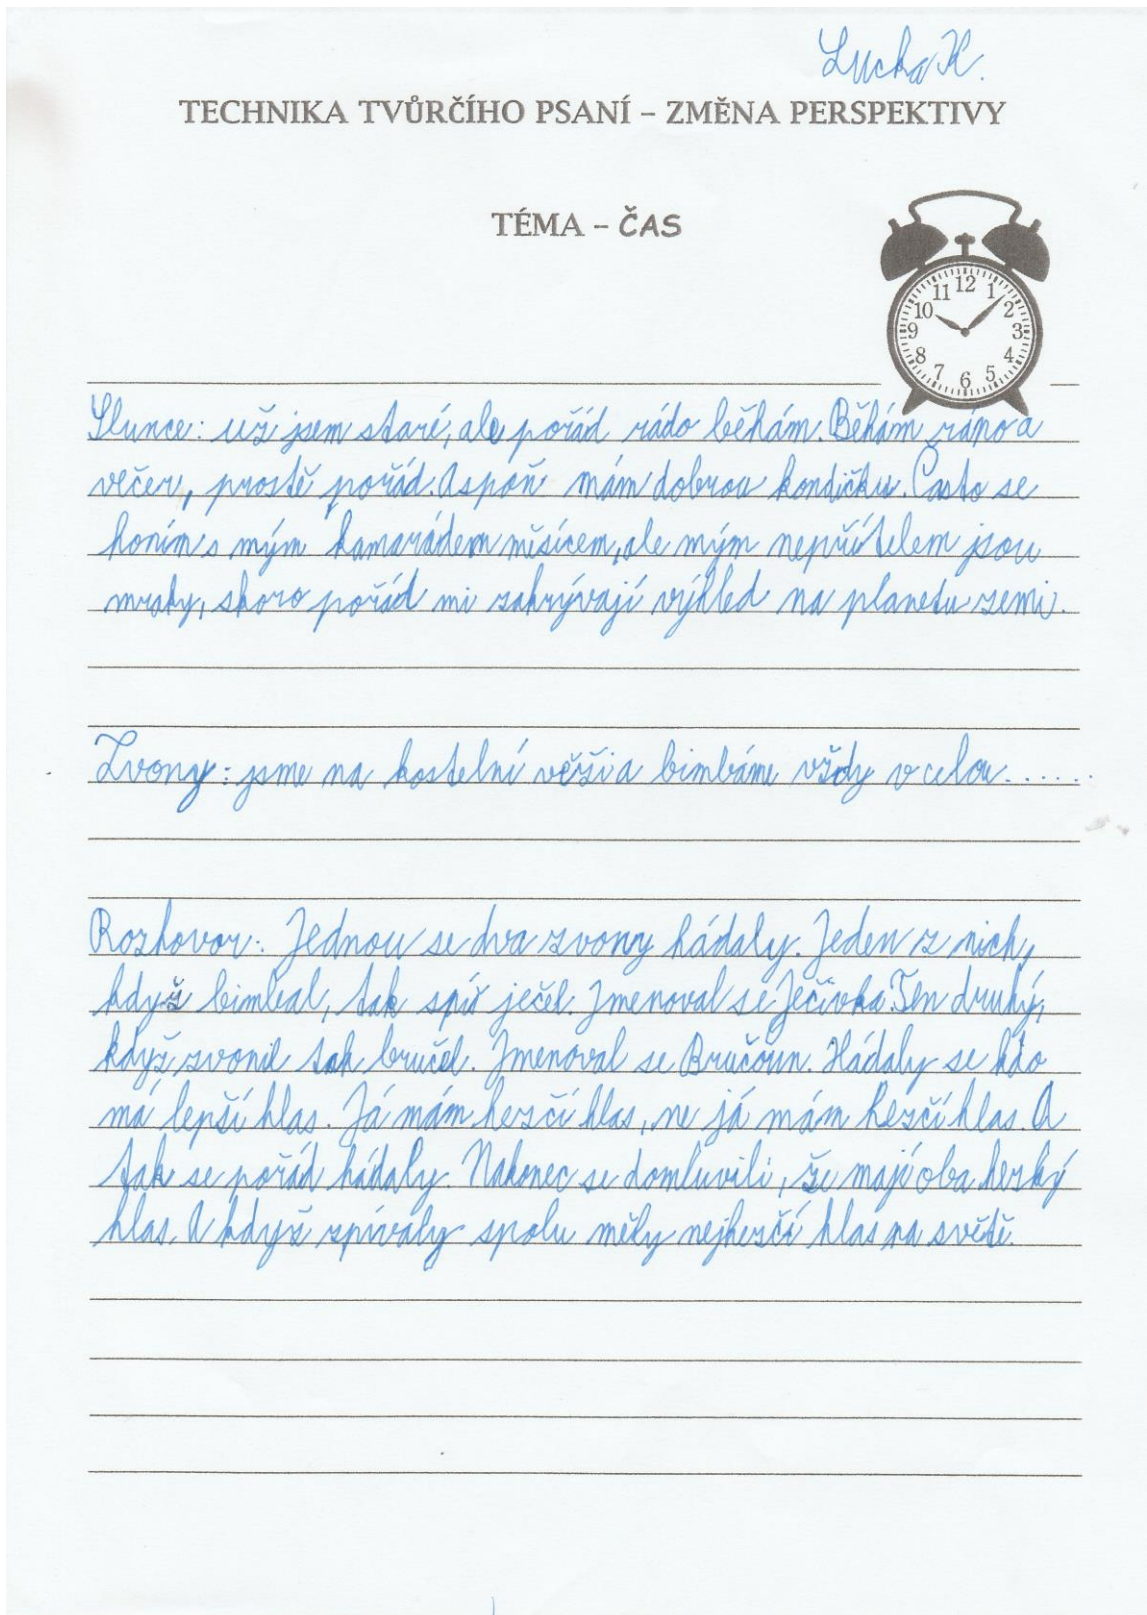 Lucka K.
TECHNIKA TVŮRČÍHO PSANÍ – ZMĚNA PERSPEKTIVY
TÉMA – ČAS
11 12 1
10 2
9 3
8 4
7 6 5
Slunce: už jsem staré, ale pořád rádo běhám. Běhám ráno a
večer, prostě pořád. Aspoň mám dobrou kondičku. Často se
honím s mým kamarádem měsícem, ale mým nepřítelem jsou
mraky, skoro pořád mi zakrývají výhled na planetu zemi.
Zvony: jsme na kostelní věži a bimbáme vždy v celou......
Rozhovor: Jednou se dva zvony hádaly. Jeden z nich,
když bimbal, tak spíš ječel. Jmenoval se Ječivka. Ten druhý,
když zvonil tak bručel. Jmenoval se Bručoun. Hádaly se kdo
má lepší hlas. Já mám hezčí hlas, ne já mám hezčí hlas. A
tak se pořád hádaly. Nakonec se domluvili, že mají oba hezký
hlas. A když zpívaly spolu měly nejhezčí hlas na světě.